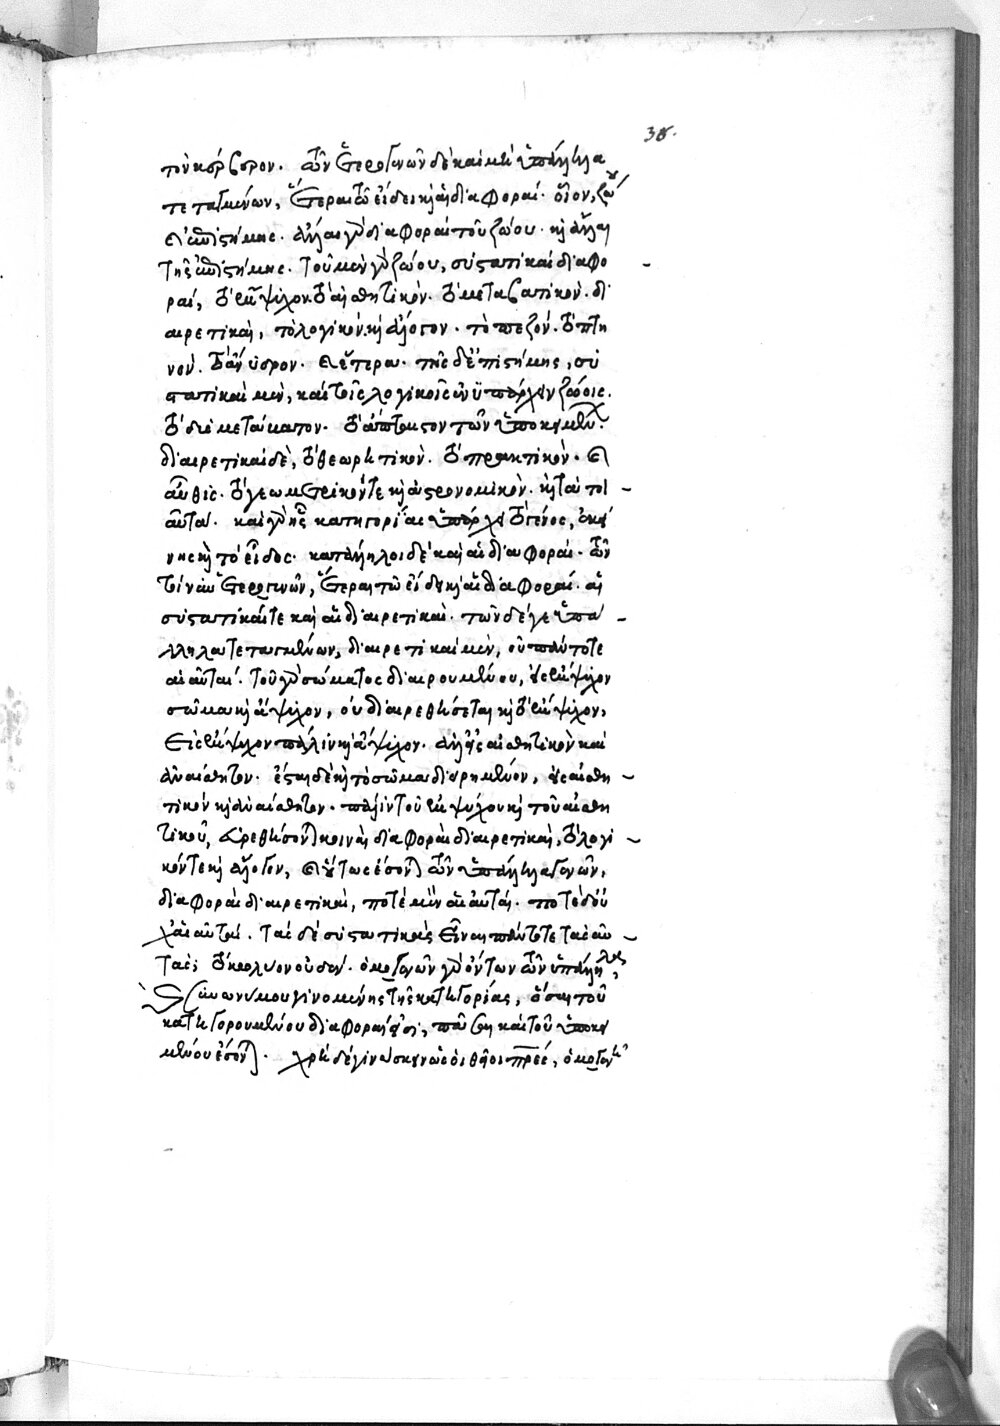 38.
τὸν κορίσκον. τῶν ἑτερογενῶν δὲ καὶ μὴ ὑπάλληλα
τεταγμένων, ἕτεραι τῶ εἴδει κỳ αἱ διαφοραί. οἷον, ζώου
ἐπιστήμης. ἄλλαι γὰρ διαφοραὶ τοῦ ζώου. κỳ ἄλλαι
τῆς ἐπιστήμης. τοῦ μὲν γὰρ ζώου, συστατικαὶ διαφο
ραί, τὸ ἔμψυχον. τὸ αἰσθητικόν. τὸ μεταβατικόν. δι
αιρετικαὶ, τὸ λογικόν. κỳ ἄλογον. τὸ πεζόν. τὸ πτη
νόν. τὸ ἔνυδρον. ἕτερα. τῆς δὲ ἐπιστήμης, συ
στατικαὶ μὲν, καὶ τὸ ἐν τοῖς λογικοῖς ἐνυπάρχειν ζώοις.
τὸ ἀμετάπτωτον τῶν ὑποκειμένων.
διαιρετικαὶ δὲ, τὸ θεωρητικόν. τὸ πρακτικόν.
αὖθις. τὸ γεωμετρικόν τε κỳ ἀστρονομικόν. κỳ τὰ τοι
αῦτα. καὶ γὰρ ἧς κατηγορίας ὑπάρχει τὸ γένος, ἐκεί
νης κỳ τὸ εἶδος. κατάλληλοι δὲ καὶ αἱ διαφοραί. τῶν
ἑτερογενῶν, ἕτεραι τῶ εἴδει κỳ αἱ διαφοραί. αἱ
συστατικαί τε καὶ αἱ διαιρετικαί. τῶν δέ γε ὑπά
λληλα τεταγμένων, διαιρετικαὶ μὲν, οὐ πάντοτε
αἱ αὐταί. τοῦ γὰρ σώματος διαιρουμένου, εἰς ἔμψυχον
σῶμα κỳ ἄψυχον, οὐ διαιρεθήσεται κỳ τὸ ἔμψυχον,
εἰς ἔμψυχον πάλιν κỳ ἄψυχον. ἀλλ' εἰς αἰσθητικὸν καὶ
ἀναίσθητον. ἔσται δὲ κỳ τὸ σῶμα διῃρημένον, εἰς αἰσθη
τικόν κỳ ἀναίσθητον. πλὴν τοῦ ἐμψύχου κỳ τοῦ αἰσθη
τικοῦ, εὑρεθήσονται κοιναὶ διαφοραὶ διαιρετικαὶ, τὸ λογι
κόν τε κỳ ἄλογον, οὕτως ἔσονται τῶν ὑπάλληλα γενῶν,
διαφοραὶ διαιρετικαὶ, ποτὲ μὲν αἱ αὐταί. ποτὲ δὲ οὐ
χ αἱ αὐταί. τὰς δὲ συστατικὰς εἶναι πάντοτε τὰς αὐ
τὰς; τὸ κωλῦον οὐδέν. ὁμογενῶν γὰρ ὄντων τῶν ὑπαλλήλων,
συνωνύμου γινομένης τῆς κατηγορίας, ὅσαι τοῦ
κατηγορουμένου διαφοραί εἰσι, πᾶσαι καὶ τοῦ ὑποκει
μένου ἔσονται. χρὴ δὲ γινώσκειν ὡς οἱ θεῖοι πρες, ὁμογενῆ